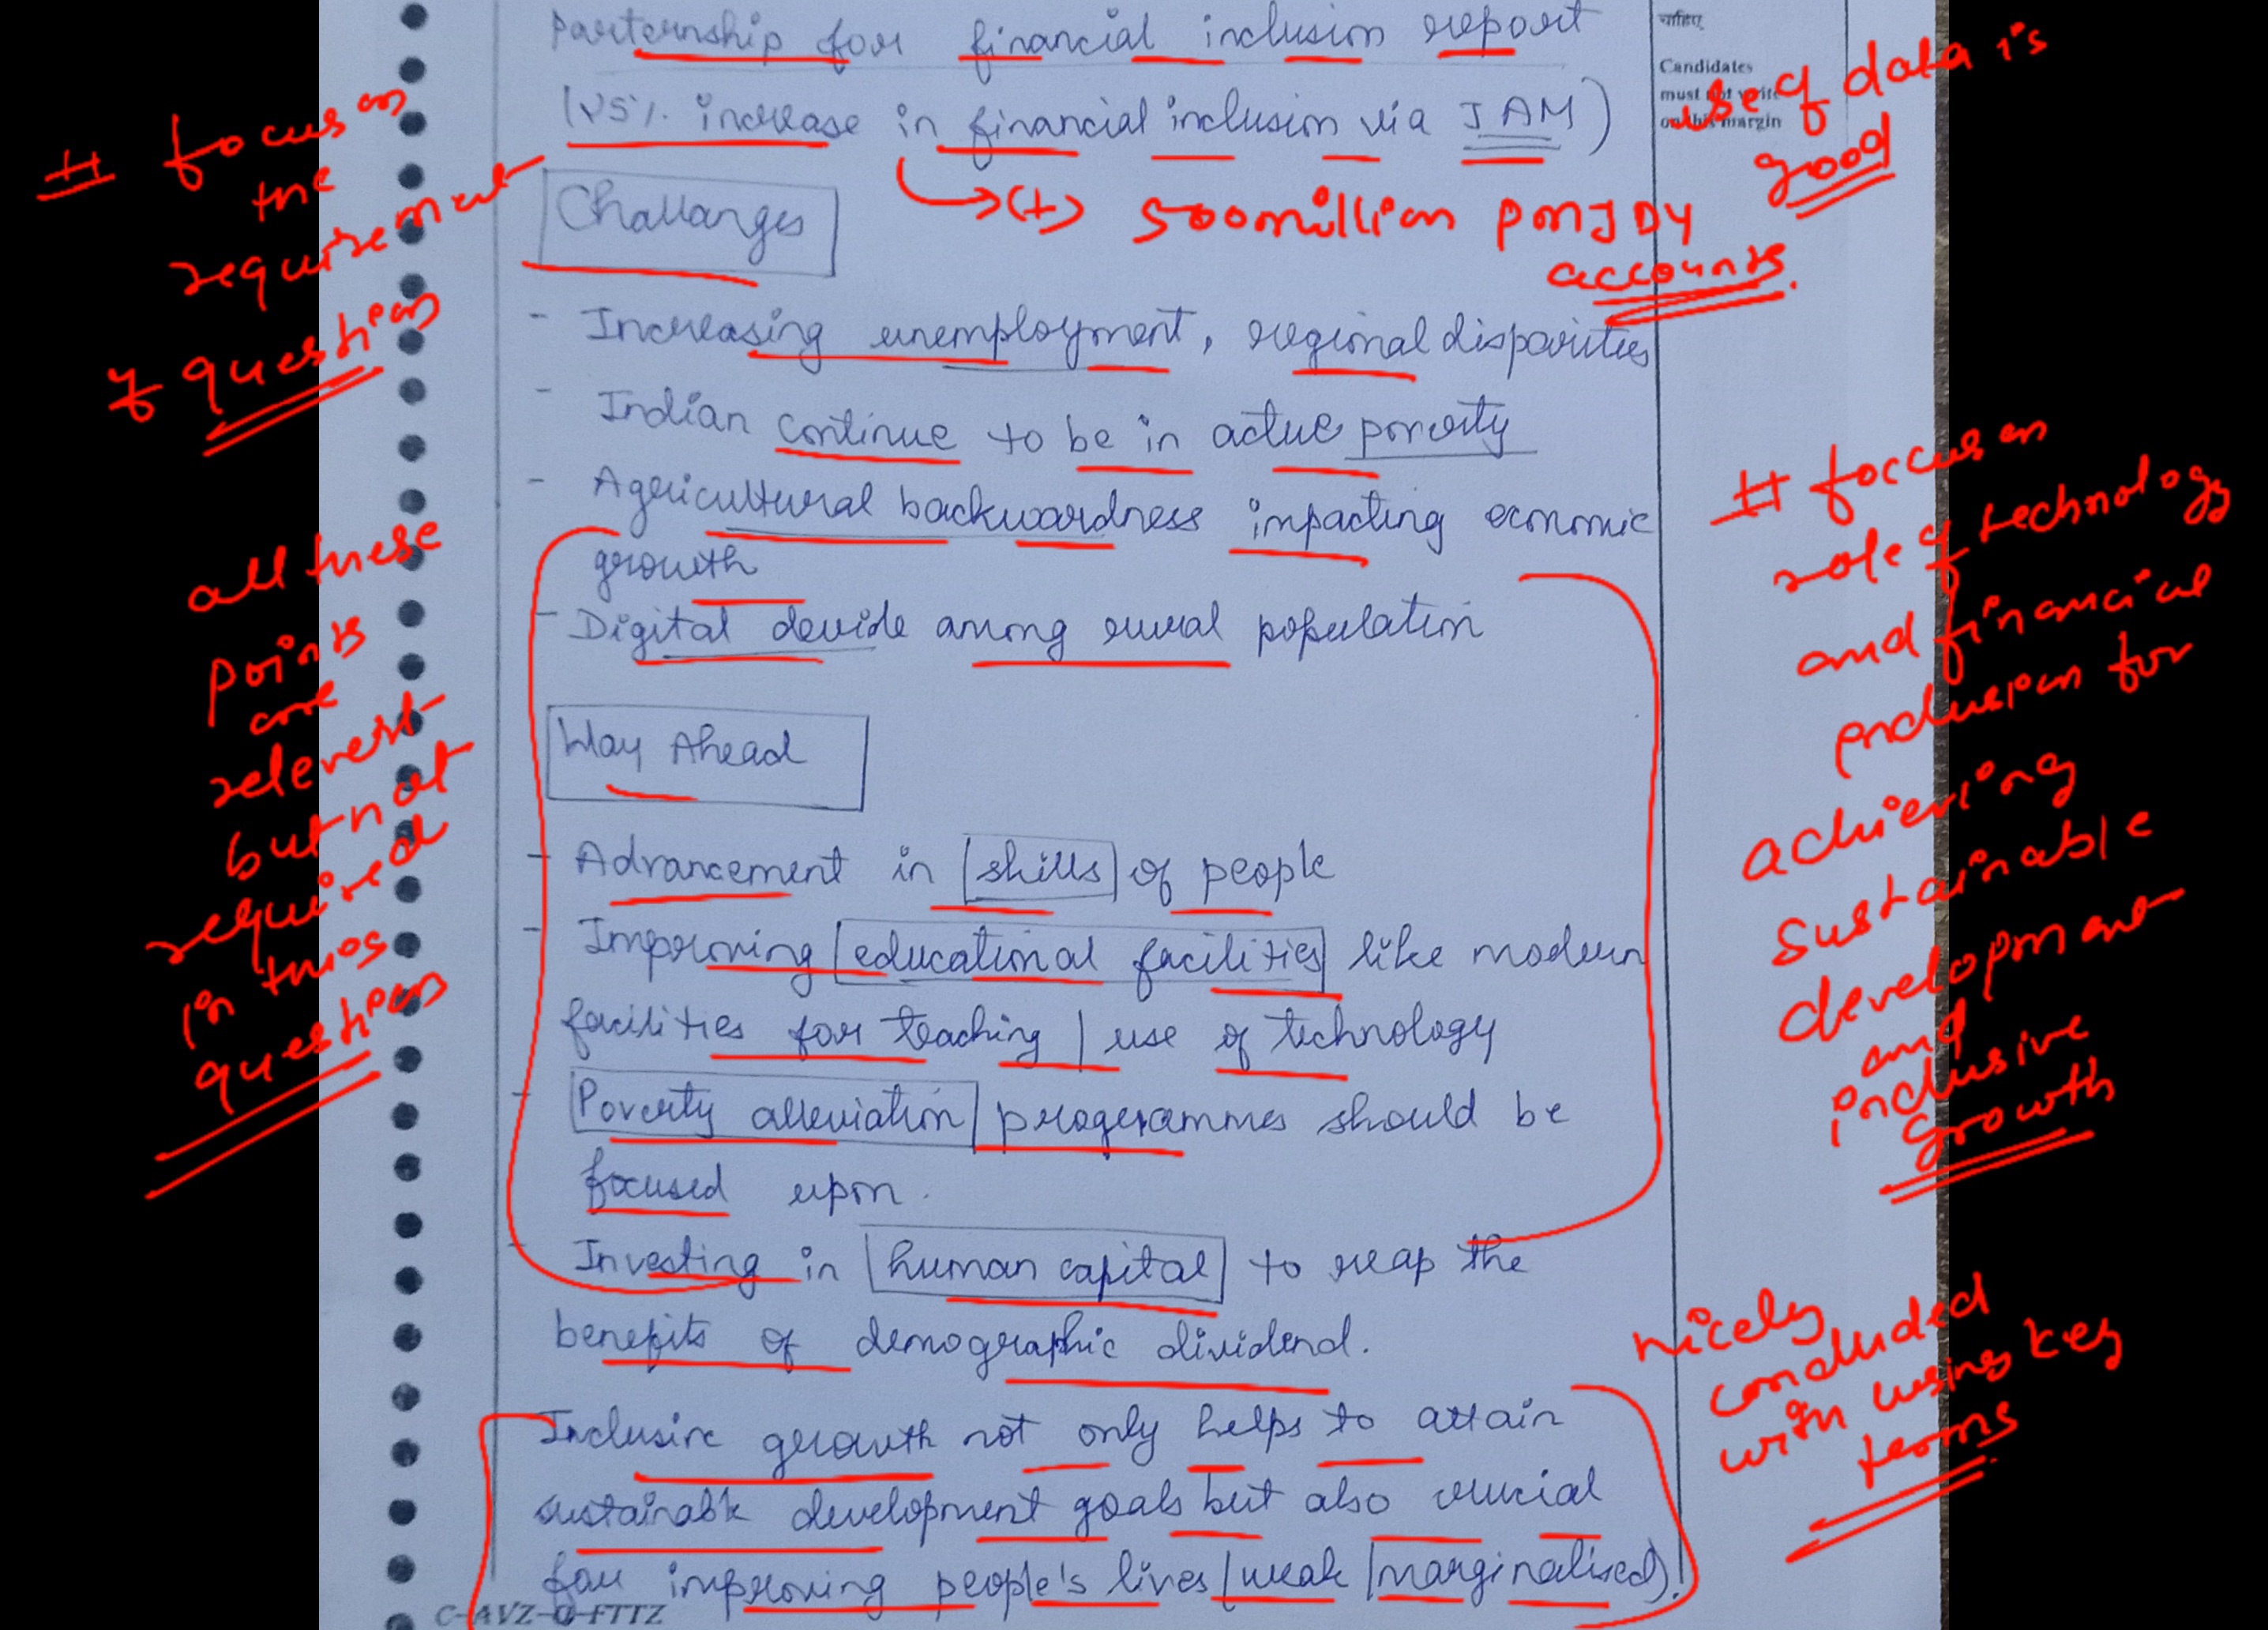 Parternship for financial inclusion report
(25%. increase in financial inclusion via JAM)
Challanges
- Increasing unemployment, regional disparities
- Indian continue to be in actue poverty
- Agricultural backwardness impacting economic
growth
- Digital devide among rural population
Way Ahead
- Advancement in skills of people
- Improving educational facilities like modern
facilities for teaching / use of technology
- Poverty alleviation programmes should be
focused upon.
- Investing in human capital to reap the
benefits of demographic dividend.
Inclusive growth not only helps to attain
sustainable development goals but also crucial
for improving people's lives (weak / marginalised)!
C-AVZ-O-FTTZ
चाहिए
Candidates
must not write
on this margin
# focus on
the
requirement
of question
all these
points
are
relevent
but not
required
in this
question
use of data is
good
→ (+) 500 million PMJDY
accounts.
# foccus on
role of technology
and financial
inclusion for
achieving
sustainable
development
and
inclusive
growth
nicely
concluded
with using key
terms